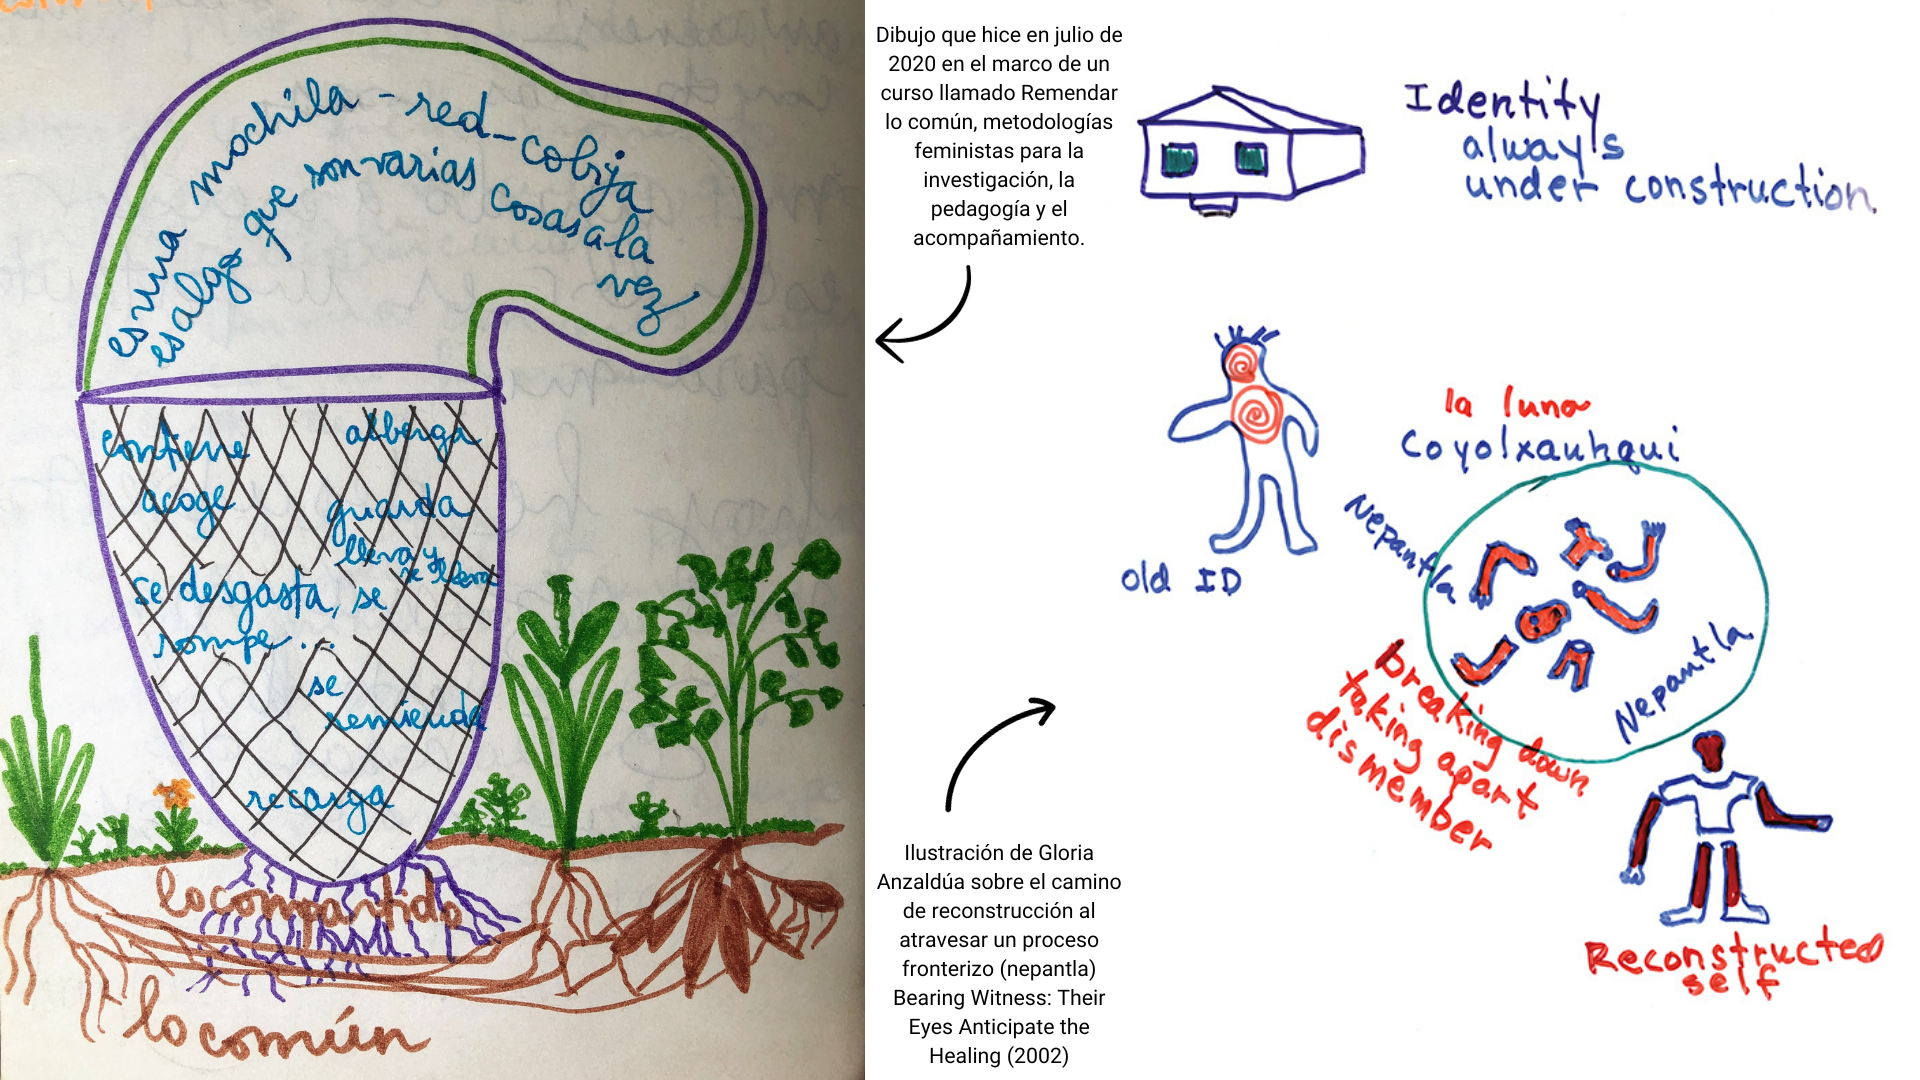 es una mochila - red - cobija
es algo que son varias cosas a la
vez
contiene
alberga
acoge
guarda
lleva y
se lleva
se desgasta, se
rompe ...
se
remienda
recarga
lo compartido
lo común
Dibujo que hice en julio de
2020 en el marco de un
curso llamado Remendar
lo común, metodologías
feministas para la
investigación, la
pedagogía y el
acompañamiento.
Ilustración de Gloria
Anzaldúa sobre el camino
de reconstrucción al
atravesar un proceso
fronterizo (nepantla)
Bearing Witness: Their
Eyes Anticipate the
Healing (2002)
Identity
always
under construction
old ID
la luna
Coyolxauhqui
Nepantla
Nepantla
breaking down
taking apart
dismember
Reconstructed
self